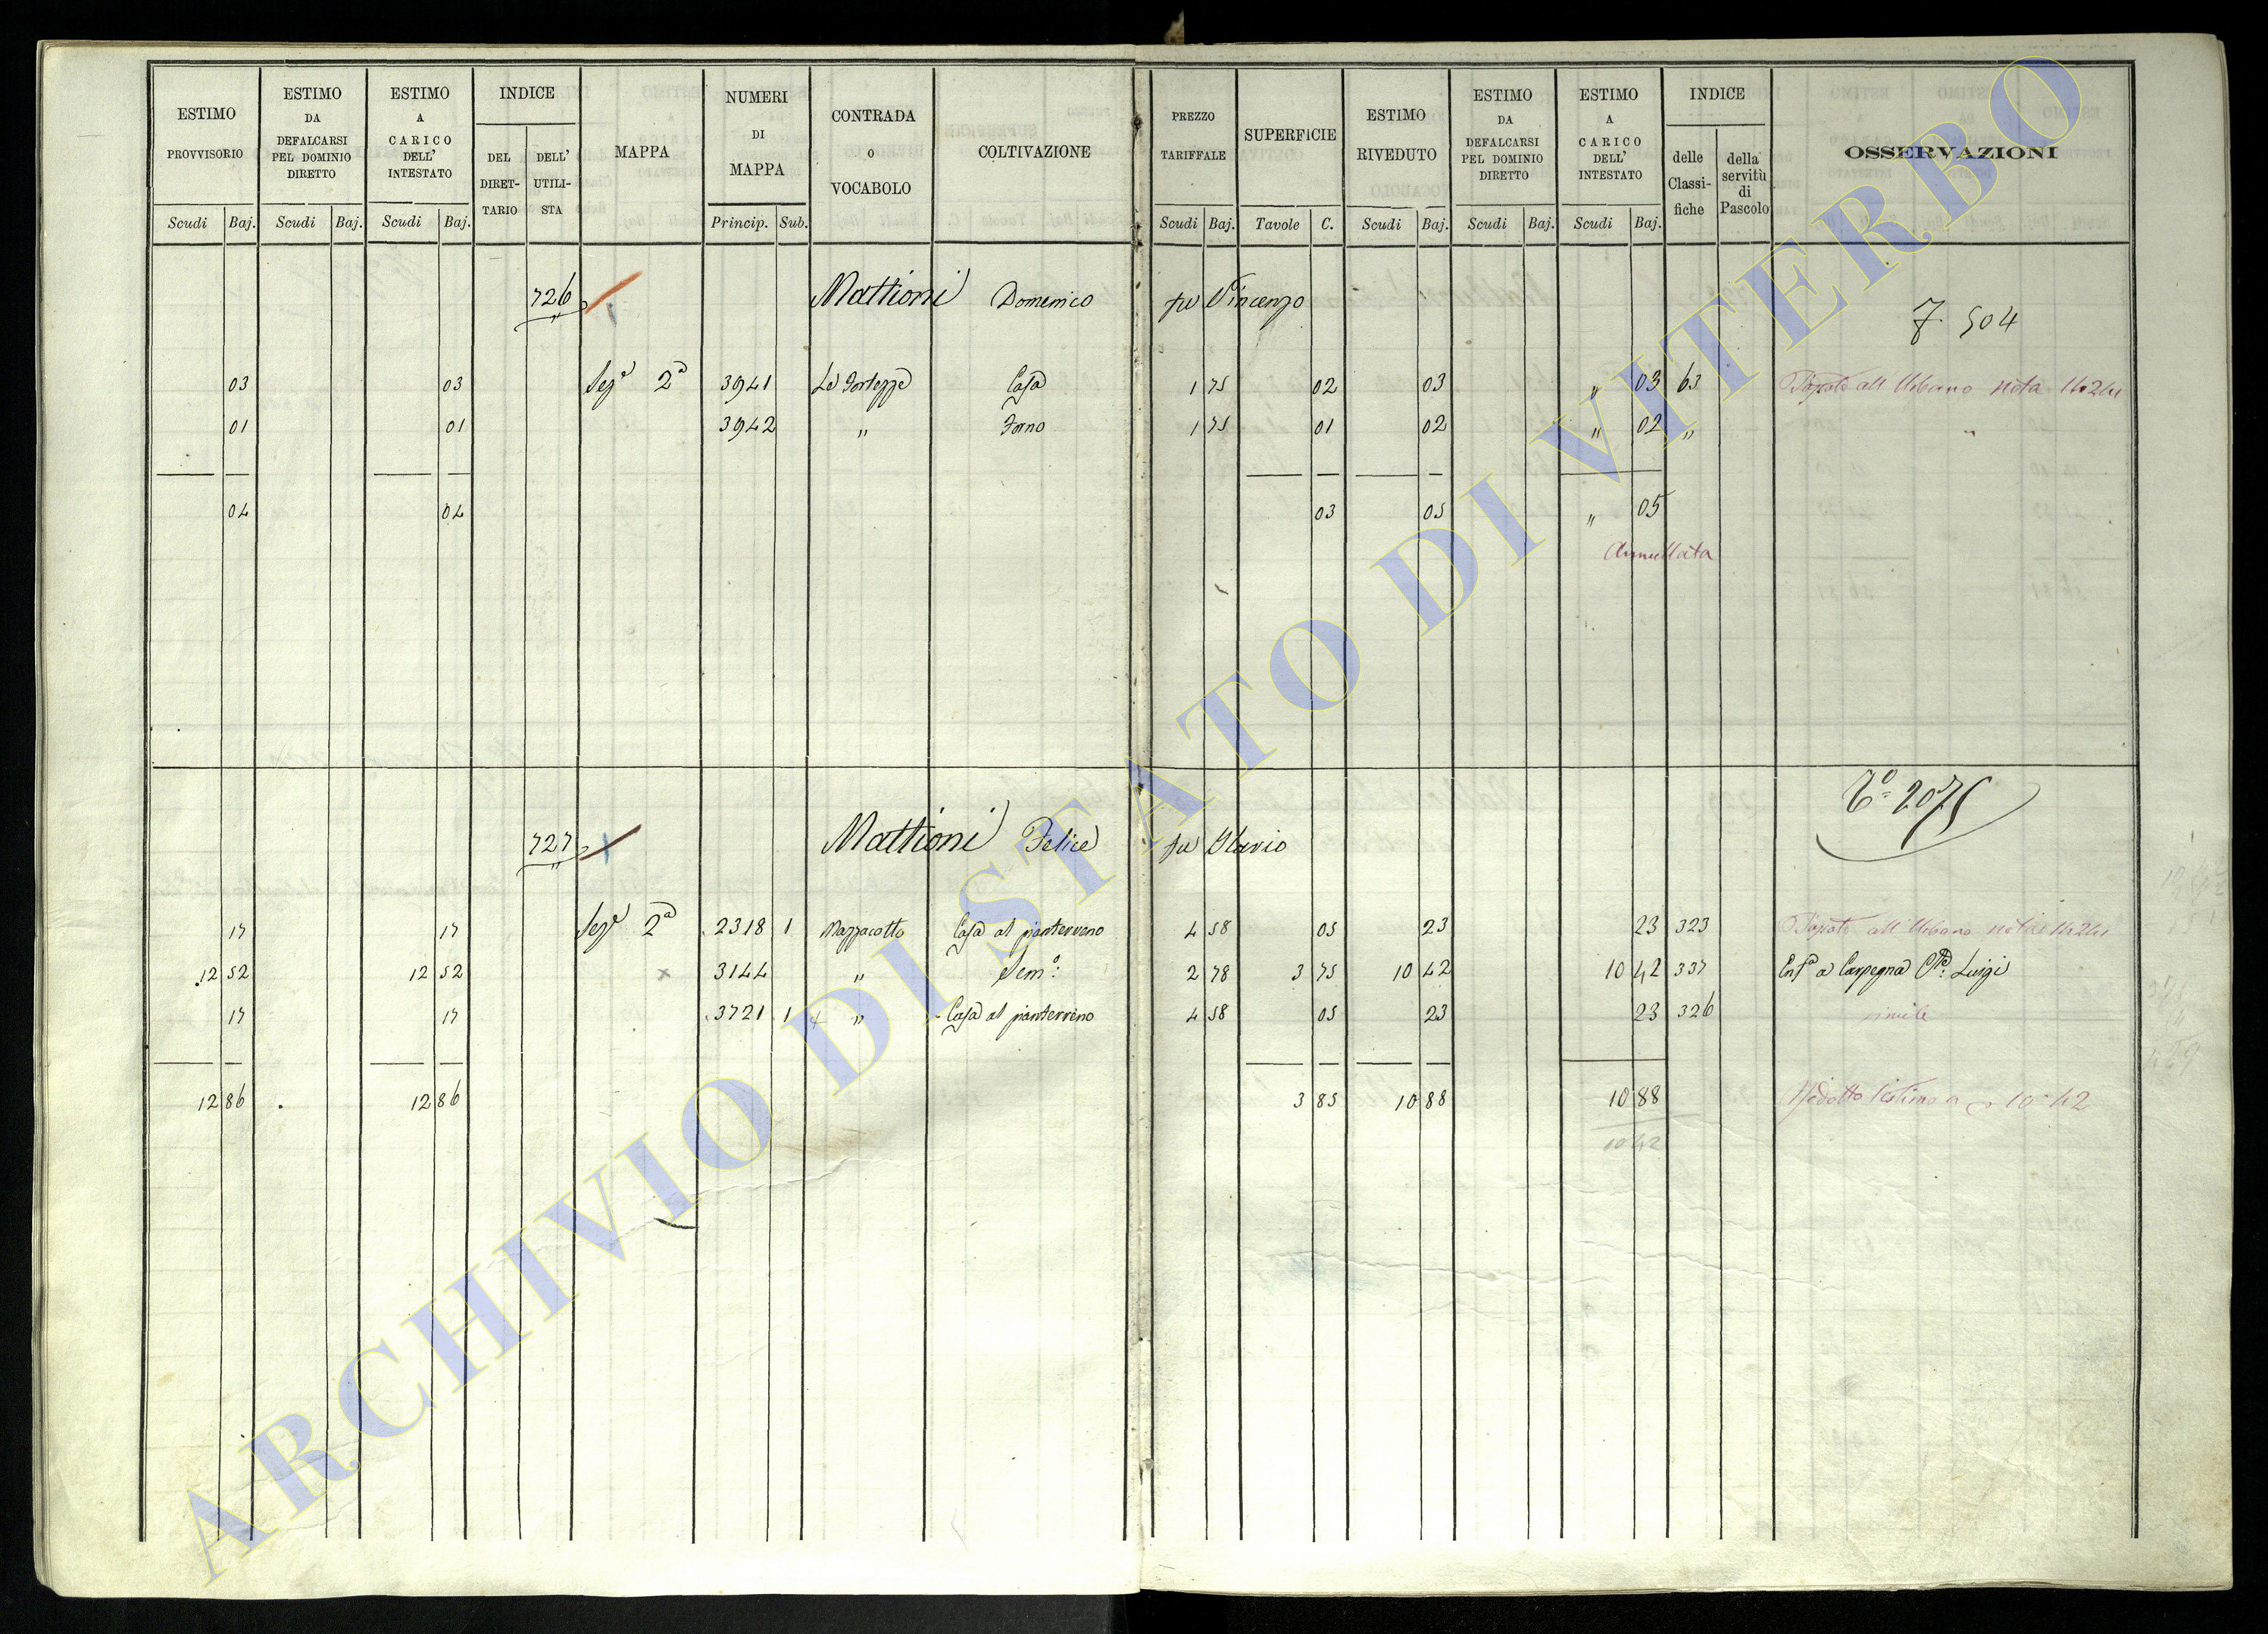 ESTIMO PROVVISORIO
ESTIMO DA DEFALCARSI PEL DOMINIO DIRETTO
ESTIMO A CARICO DELL' INTESTATO
INDICE
DEL DIRET-TARIO
DELL' UTILI-STA
MAPPA
NUMERI DI MAPPA
CONTRADA O VOCABOLO
COLTIVAZIONE
PREZZO TARIFFALE
SUPERFICIE
ESTIMO RIVEDUTO
ESTIMO DA DEFALCARSI PEL DOMINIO DIRETTO
ESTIMO A CARICO DELL' INTESTATO
INDICE
delle Classi-fiche
della servitù di Pascolo
OSSERVAZIONI
Scudi Baj. Scudi Baj. Scudi Baj. Princip. Sub. Scudi Baj. Tavole C. Scudi Baj. Scudi Baj. Scudi Baj.
726 Mattioni Domenico fu Vincenzo
504
03 03 Seze 2a 3941 Le Fortezze Casa 1 75 02 03 " 03 63 all Urbano nota
01 01 3942 " Forno 1 75 01 02 " 02 "
04 04 03 05 " 05
Annullata
2075
727 Mattioni Felice fu Ilario
17 17 Seze 2a 2318 1 Mazzacotto Casa al pianterreno 4 58 05 23 23 323 all Urbano nota
12 52 12 52 3144 " Semo: 2 78 3 75 10 42 10 42 337 Enfa a Carpegna Cte: Luigi
17 17 3721 1 " Casa al pianterreno 4 58 05 23 23 326 simile
12 86 12 86 3 85 10 88 10 88 Ridotto l'estimo a 10 42
10 42
ARCHIVIO DI STATO DI VITERBO